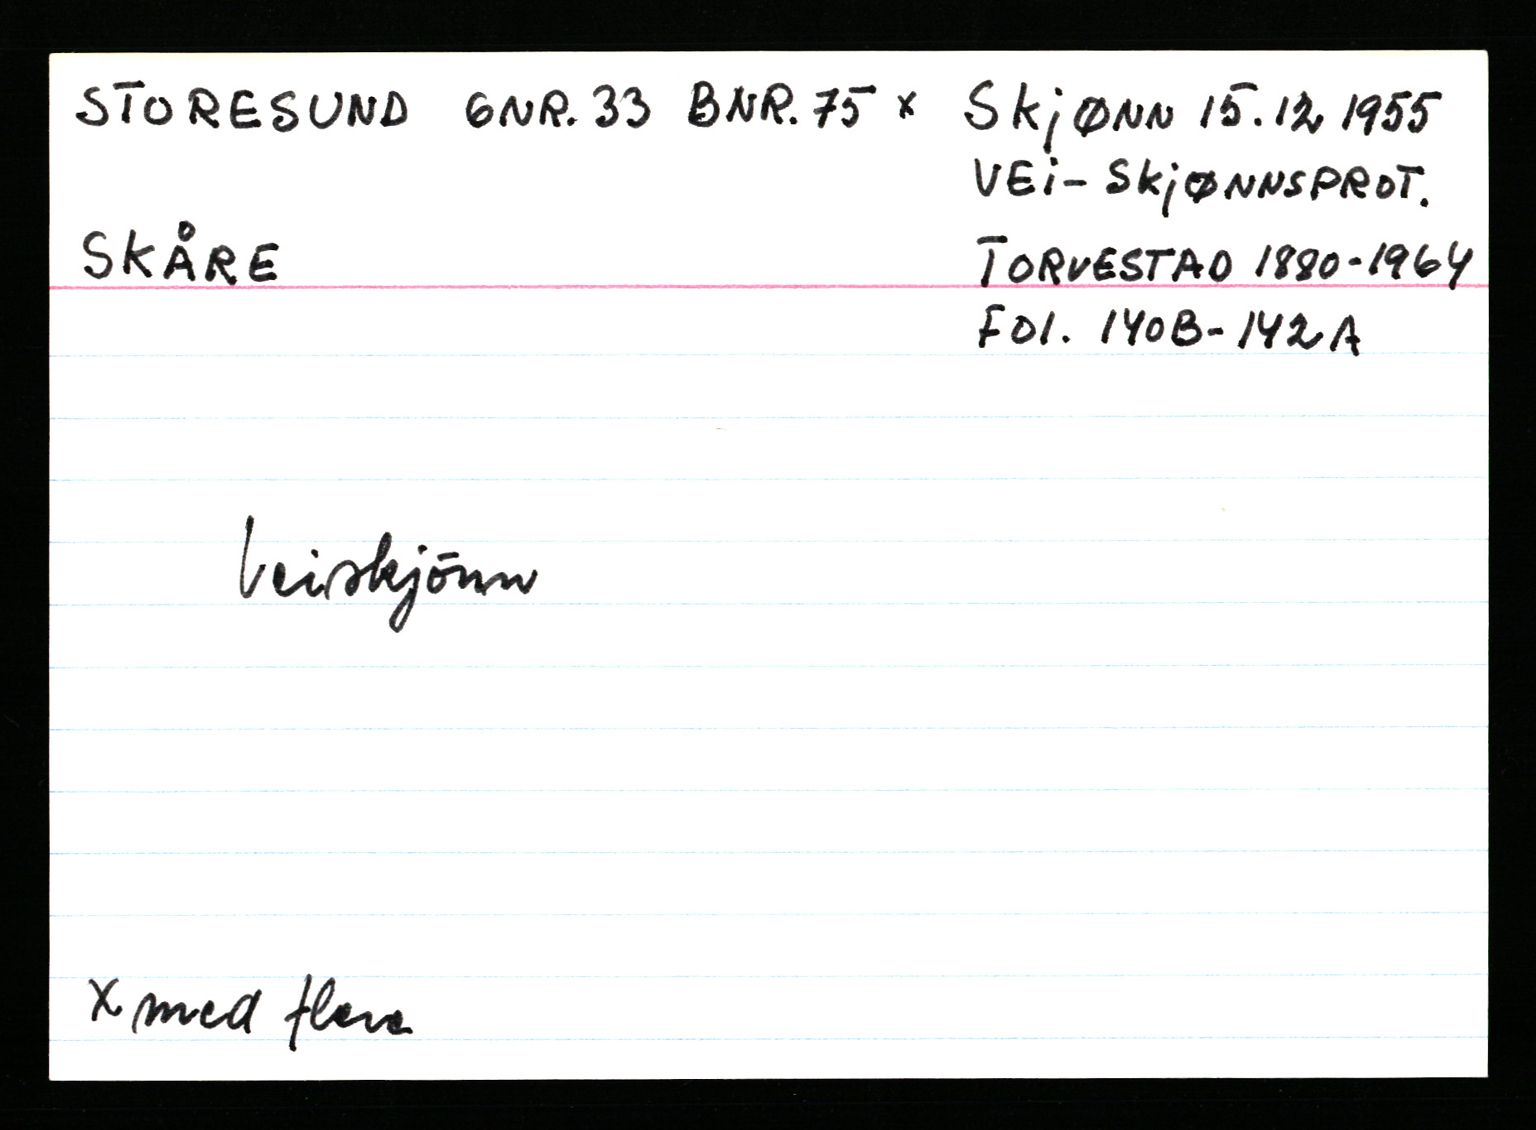 STORESUND GNR. 33 BNR. 75 x Skjønn 15.12 1955
VEi- SkjØNNSPROT.
SKÅRE
TORVESTAD 1880-1964
FOl. 140B-142A
Veiskjönn
x med flere